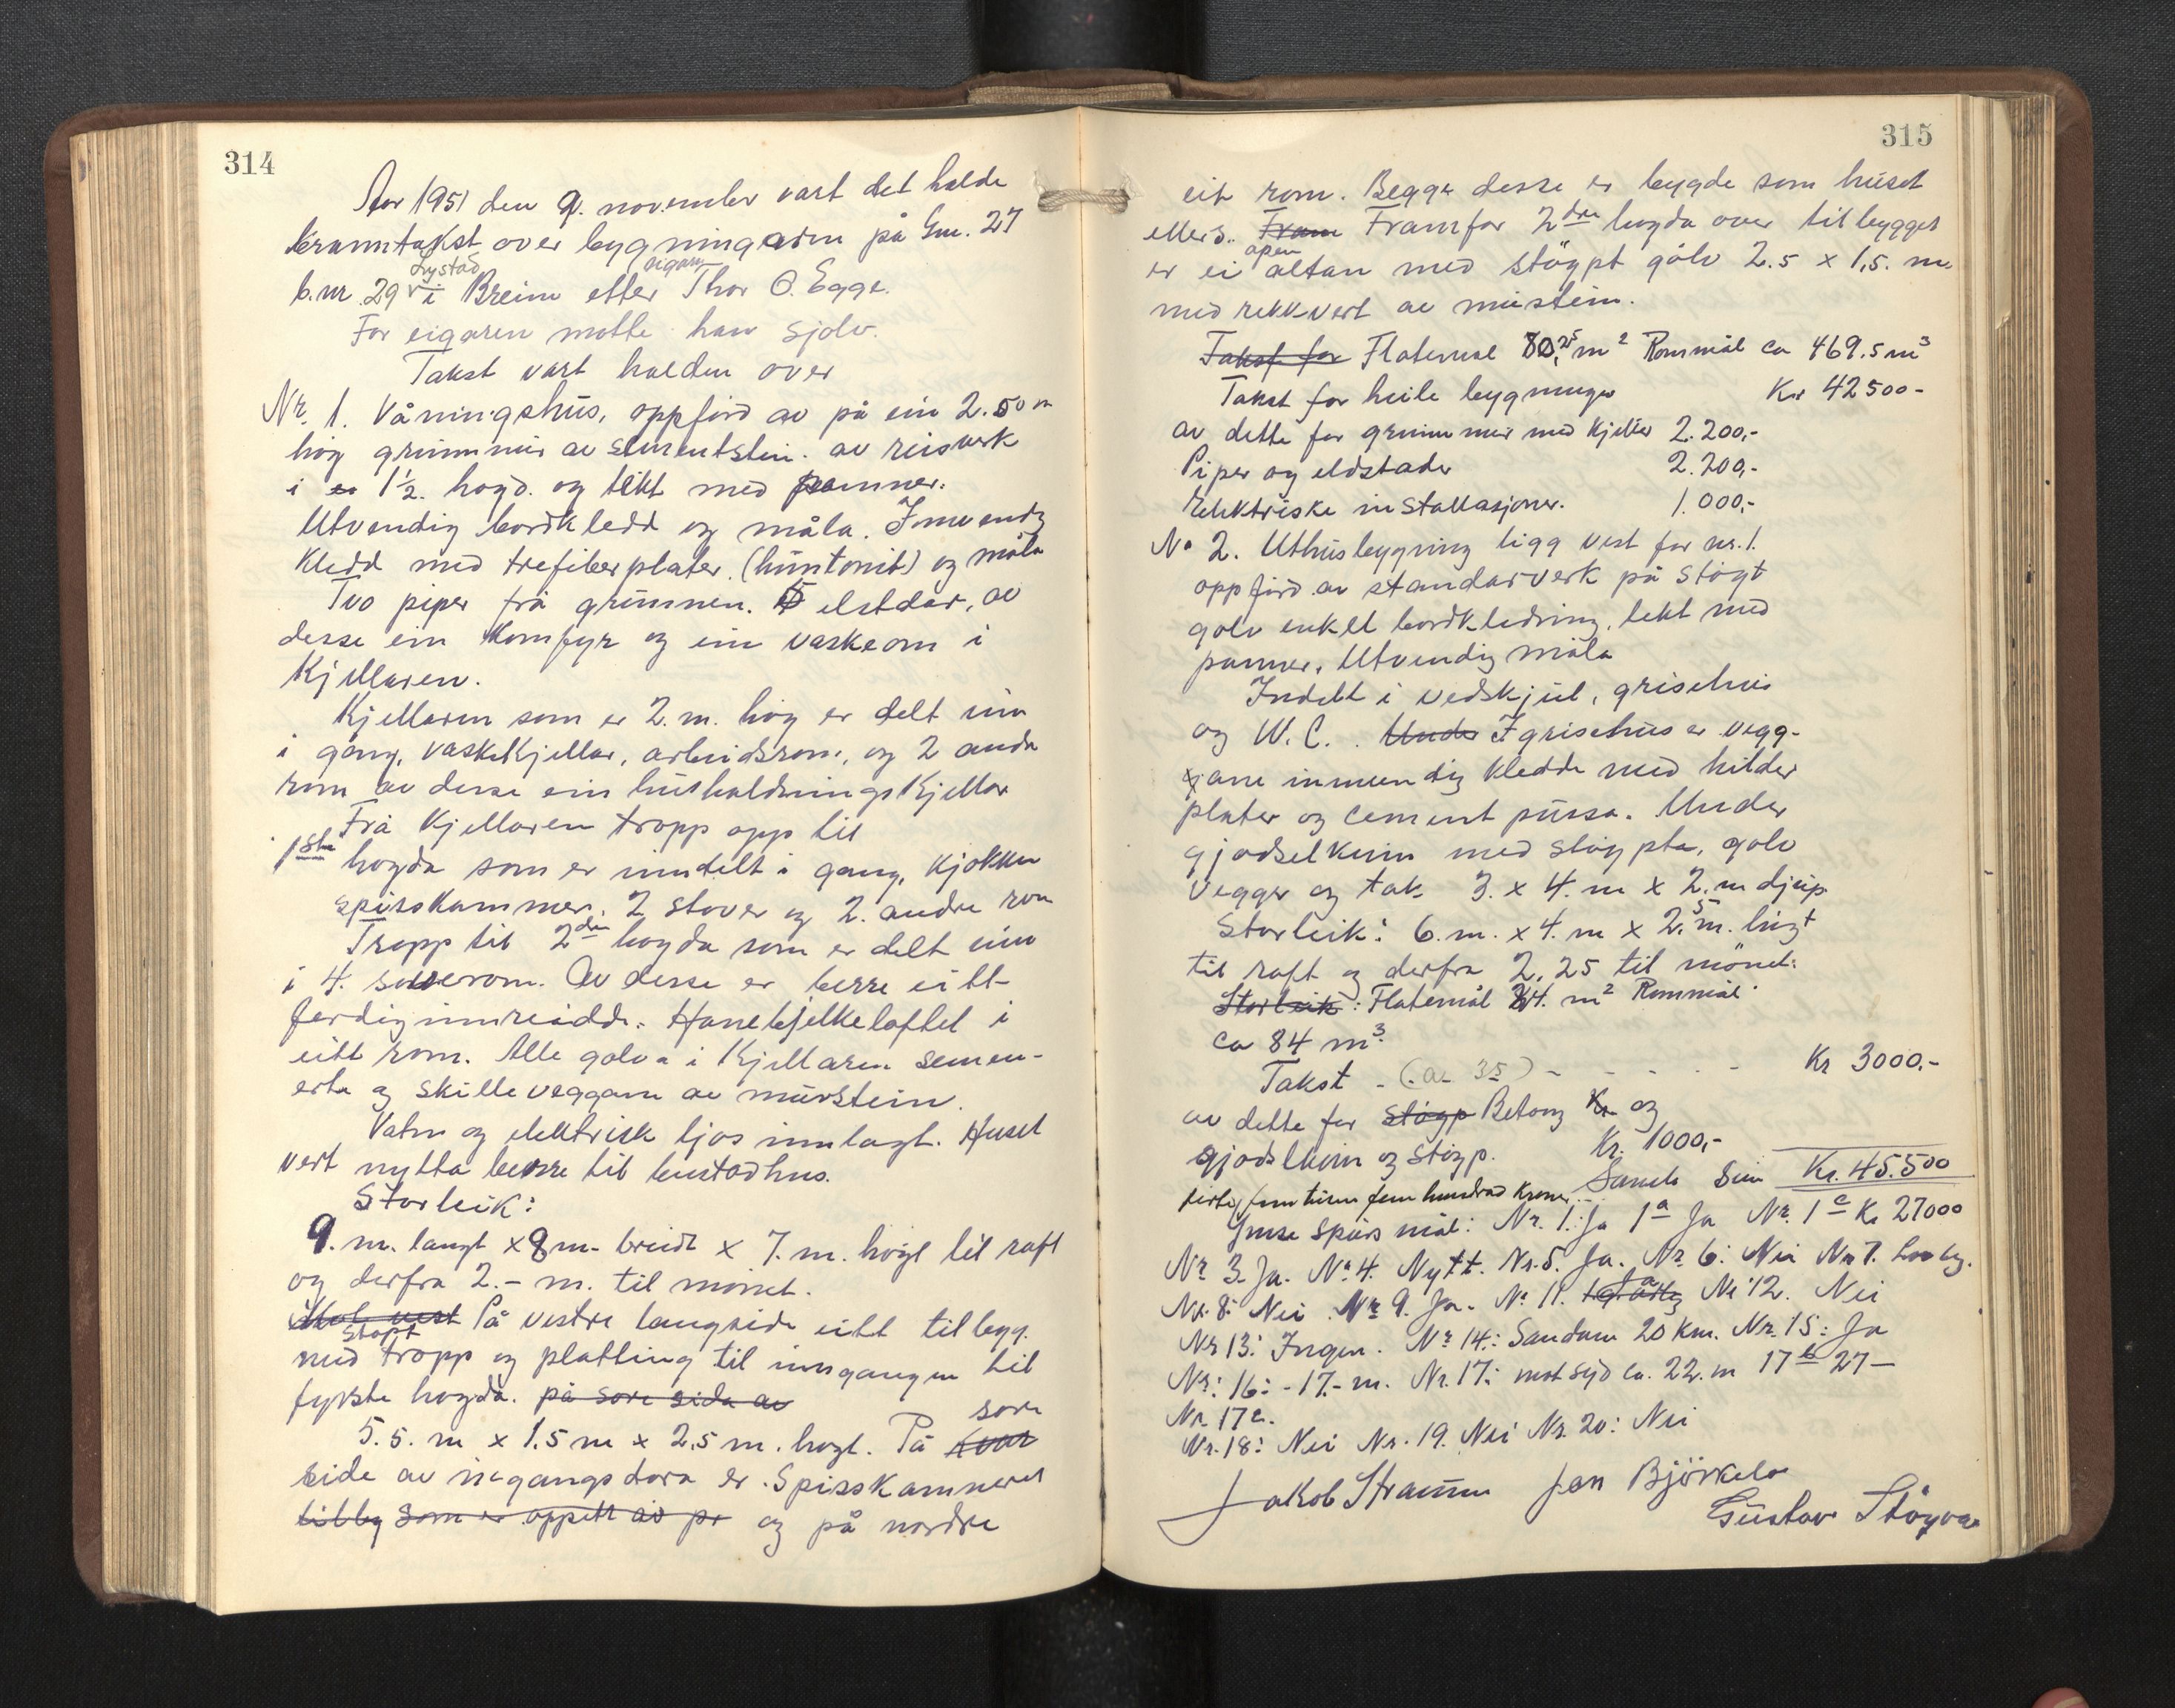 314
Aar 1951 den 9. november vart det halde
branntakst over bygningarna på Gnr. 27
b.nr 29 Lystad i Breim etter eigaren Thor O. Egge.
For eigaren møtte han sjølv.
Takst vart halden over
Nr. 1. Våningshus, oppførd av på ein 2.50 m
høg grunnmur av sementstein. av reisverk
i 1½. høgd. og tekt med panner.
Utvendig bordkledd og måla. Innvendig
kledd med trefiberplater. (huntonit) og måla
Tvo piper frå grunnen. 5 elstdar, av
desse ein komfyr og ein vaskeomn i
Kjellaren.
Kjellaren som er 2. m. høg er delt inn
i gang, vaskekjellar, arbeidsrom, og 2 andre
rom av desse ein hushaldningskjellar
Frå Kjellaren tropp opp til
1ste høgda som er inndelt i gang, kjøkken
spisskammer. 2 stover og 2. andre rom
Tropp til 2dre høgda som er delt inn
i 4. soverom. Av desse er berre eitt
ferdig innreidde. Hanebjelkeloftet i
eitt rom. Alle golva i Kjellaren semen-
erte og skilleveggane av murstein.
Vatn og elektrisk ljos innlagt. Huset
vert nytta berre til bustadhus.
Storleik:
9. m. langt x 8 m. breidt x 7. m. høgt til raft
og derfra 2.- m. til mønet.
Mot vest På vestre langside eitt tilbygg.
med støpt tropp og platting til inngangen til
fyrste høgda. på søre side av
5.5. m x 1.5 m x 2.5 m. høgt. På kvar søre
side av inngangsdøra er Spisskammeret
tilbby som er oppsett av pr og på nordre
315
eit rom. Begge desse er bygde som huset
ellers. Fram Framfor 2dre høgda over tilbygget
er ei open altan med støypt golv 2.5 x 1.5. m.
med rekkvert av murstein.
Takst for Flatemål 80.25 m² Rommål ca 469.5 m³
Takst for heile bygningen Kr 42500-
av dette for grunnmur med kjeller 2.200,-
Piper og eldstader 2.200,-
Elektriske installasjoner. 1.000,-
No 2. Uthusbygning ligg vest for nr. 1.
oppførd av standarverk på støypt
golv enkel bordkledning. tekt med
panner. Utvendig måla
Indelt i vedskjul, grisehus
og W. C. . Under I grisehus er vegg-
jane innvendig kledde med hilder
plater og cement pussa. Under
gjødselkum med støypte, golv
vegger og tak 3. x 4. m x 2. m djup
Storleik: 6. m. x 4. m x 2.5 m. høgt
til raft og derfra 2,25 til mønet:
Storleik: Flatemål 24. m² Rommål
ca 84 m³.
Takst - (a 35) - - - - - Kr 3000,-
av dette for støyp Betong Kr og
gjødslkum og støyp. Kr. 1000,-
Samla Sum Kr. 45.500
førti fem tusen fem hundrad kroner
Ymse spørsmål: Nr. 1: Ja 1a Ja Nr. 1c Kr 27000
Nr 3. Ja. Nr 4. Nytt. Nr. 5. Ja. Nr 6: Nei Nr 7.
Nr. 8: Nei. Nr 9. Ja. Nr 11. Ja Nr 12. Nei
Nr 13: Ingen. Nr 14: Sandane 20 km. Nr. 15: Ja
Nr: 16: - 17.- m. Nr. 17: mot syd ca. 22. m 17b 27-
Nr 17c.
Nr. 18: Nei Nr. 19. Nei Nr. 20: Nei
Jakob Straume Jon Bjørkelo
Gustav Støyva